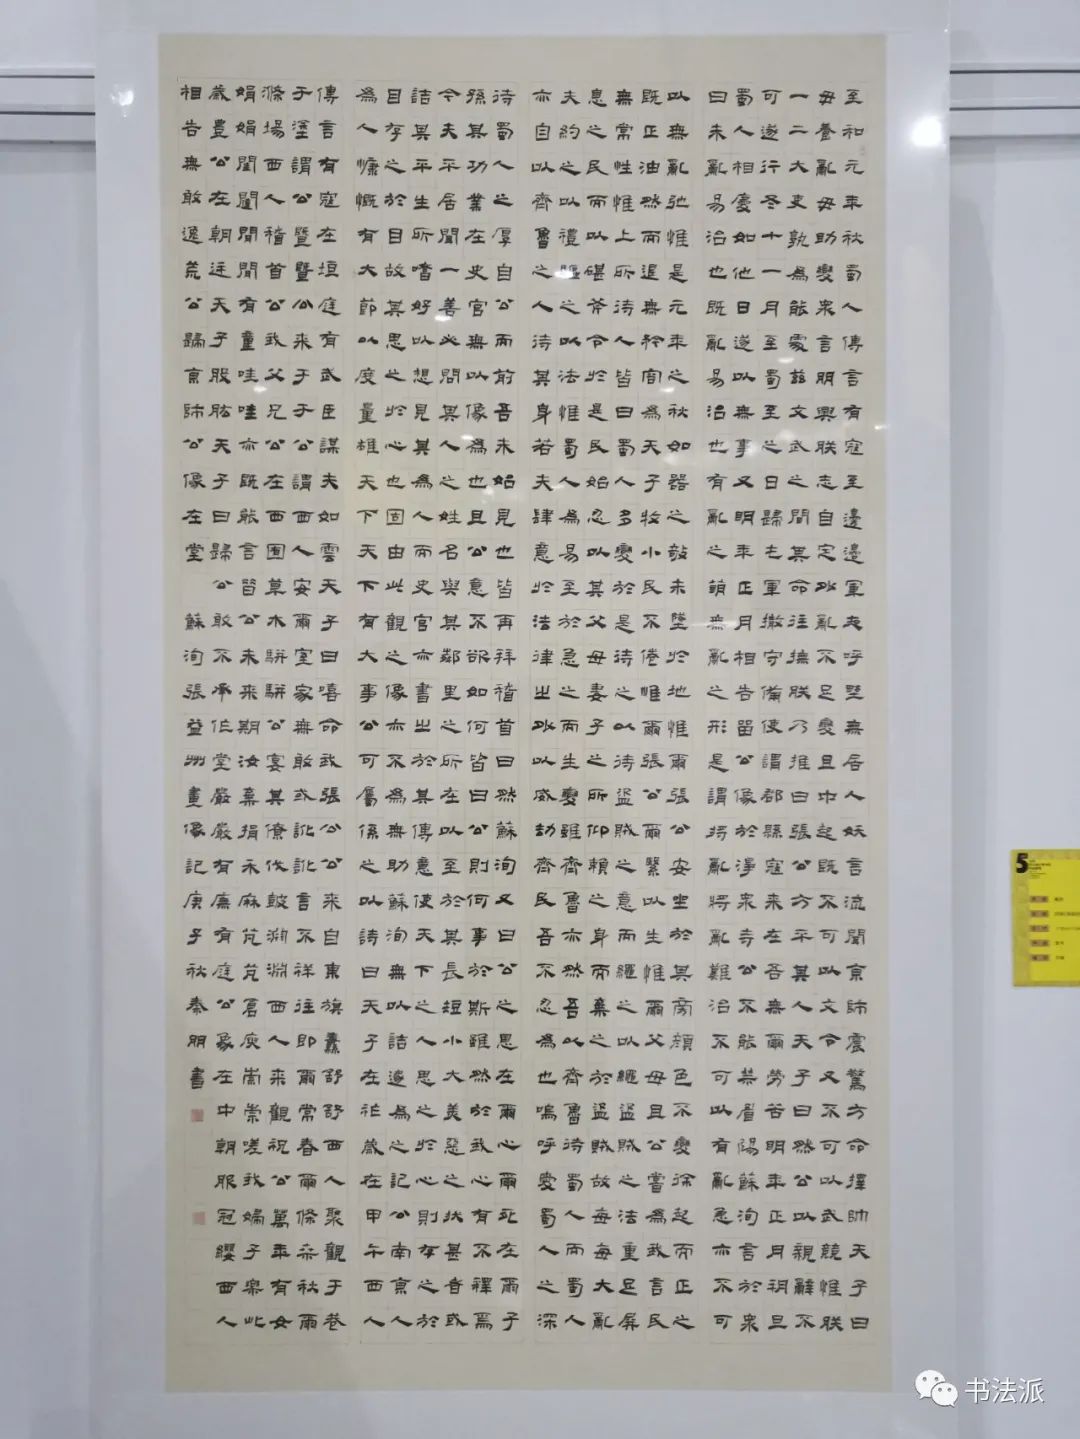 至和元年秋蜀人傳言有寇至邊邊軍夜呼野無居人妖言流聞京師震驚方命擇帥天子曰
毋養亂毋助變眾言朋興朕志自定外亂不足變且中起既不可以文令又不可以武競惟朕
一二大吏孰為能處茲文武之間其命往撫朕乃推曰張公方平其人天子曰然公以親辭不
可遂行冬十一月至蜀至之日歸屯軍撤守備使謂郡縣寇來在吾無爾勞苦明年正月朔旦
蜀人相慶如他日遂以無事又明年正月相告留公像於淨眾寺公不能禁眉陽蘇洵言於眾
曰未亂易治也既亂易治也有亂之萌無亂之形是謂將亂將亂難治不可以有亂急亦不可
以無亂弛惟是元年之秋如器之敧未墜於地惟爾張公安坐於其旁顏色不變徐起而正之
既正油然而退無矜容為天子牧小民不倦惟爾張公爾繄以生惟爾父母且公嘗為我言民
無常性惟上所待人皆曰蜀人多變於是待之以待盜賊之意而繩之以繩盜賊之法重足屏
息之民而以碪斧令於是民始忍以其父母妻子之所仰賴之身而棄之於盜賊故每每大亂
夫約之以禮驅之以法惟蜀人為易至於急之而生變雖齊魯亦然吾以齊魯待蜀人而蜀人
亦自以齊魯之人待其身若夫肆意於法律之外以威劫齊民吾不忍為也嗚呼愛蜀人之深
待蜀人之厚自公而前吾未始見也皆再拜稽首曰然蘇洵又曰公之思在爾心爾死在爾子
孫其功業在史官無以像為也且公意不欲如何皆曰公則何事於斯雖然於我心有不釋焉
今夫平居聞一善必問其人之姓名與其鄰里之所在以至於其長短小大美惡之狀甚者或
詰其平生所嗜好以想見其為人而史官亦書之於其傳意使天下之人思之於心則存之於
目存之於目故其思之於心也固由此觀之像亦不為無助蘇洵無以詰遂為之記公南京人
為人慷慨有大節以度量雄天下天下有大事公可屬係之以詩曰天子在祚歲在甲午西人
傳言有寇在垣庭有武臣謀夫如雲天子曰嘻命我張公公來自東旗纛舒舒西人聚觀于巷
于塗謂公暨暨公來于于公謂西人安爾室家無敢或訛訛言不祥往即爾常春爾條桑秋爾
滌場西人稽首公我父兄公在西囿草木駢駢公宴其僚伐鼓淵淵西人來觀祝公萬年有女
娟娟閨闥閑閑有童哇哇亦既能言昔公未來期汝棄捐禾麻芃芃倉庾崇崇嗟我婦子樂此
歲豐公在朝廷天子股肱天子曰歸公敢不承作堂嚴嚴有廡有庭公像在中朝服冠纓西人
相告無敢逸荒公歸京師公像在堂 蘇洵張益州畫像記庚子秋秦朋書
5
书法派